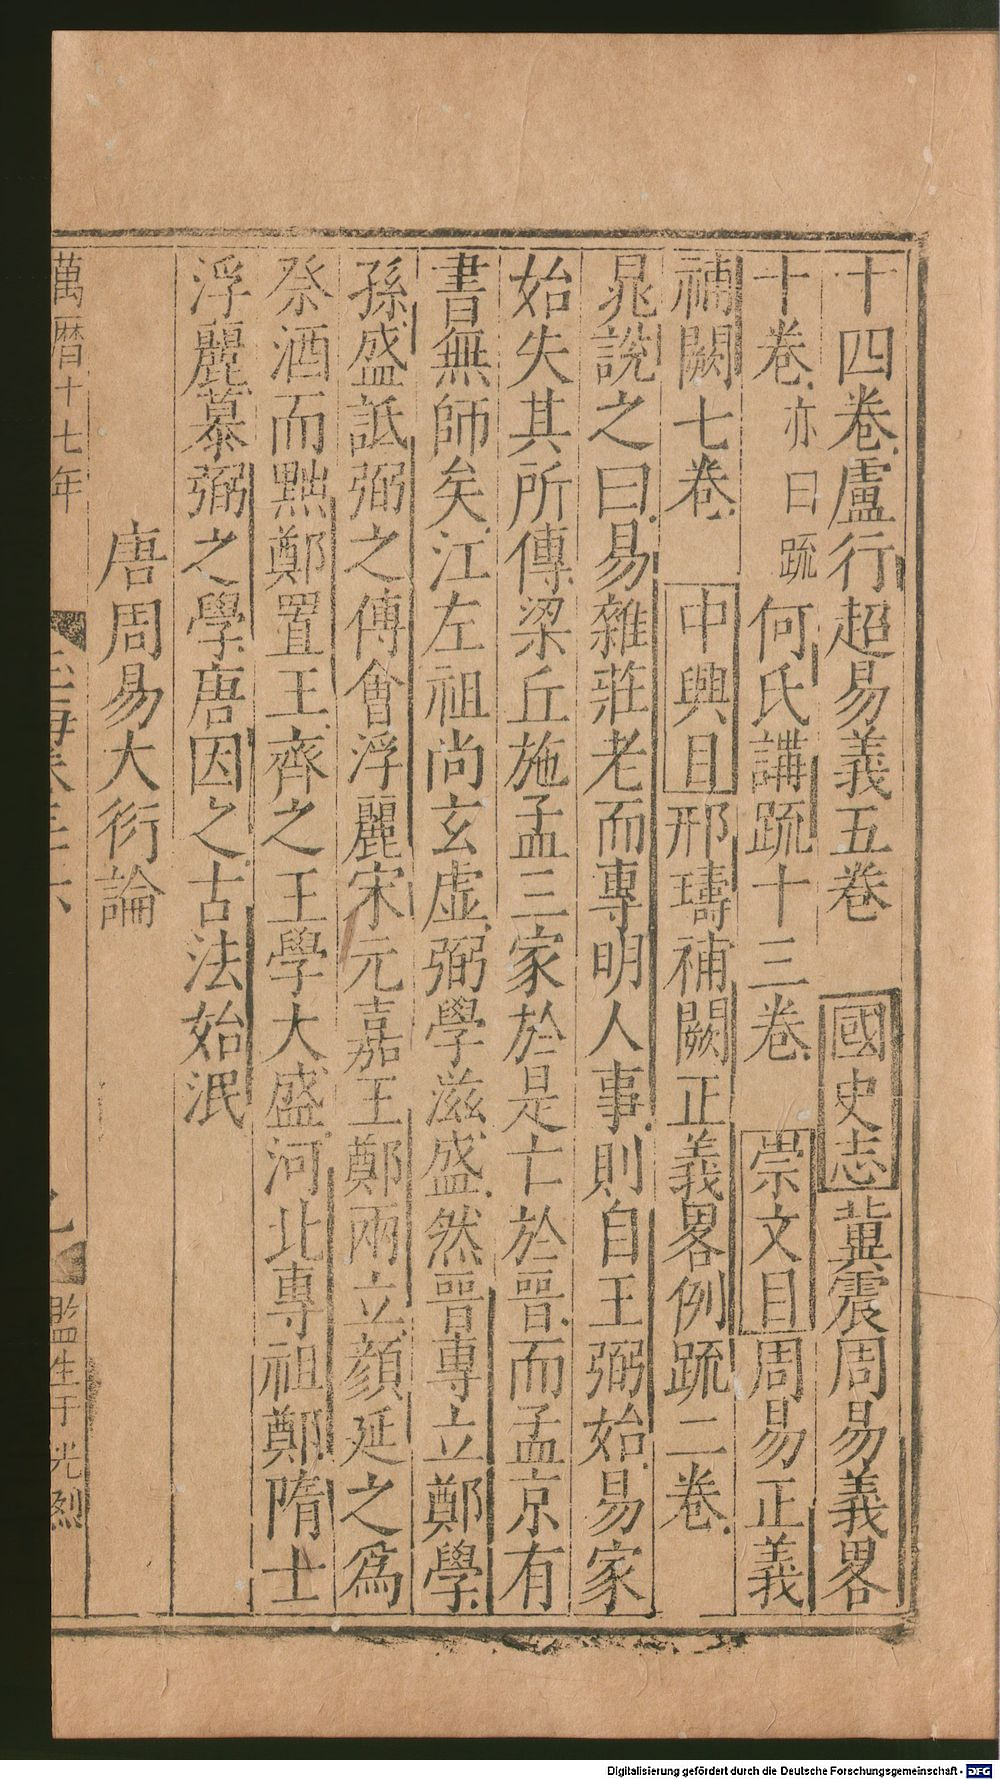 十四卷盧行超易義五卷國史志冀震周易義畧
十卷亦曰䟽何氏講䟽十三卷崇文目周易正義
補闕七卷中興目邢璹補闕正義畧例䟽二卷
晁説之曰易雜莊老而專明人事則自王弼始易家
始失其所傳梁丘施孟三家於是亡於晉而孟京有
書無師矣江左祖尚玄虛弼學滋盛然晉專立鄭學
孫盛詆弼之傅會浮麗宋元嘉王鄭兩立顔延之爲
祭酒而黜鄭置王齊之王學大盛河北專祖鄭隋士
浮麗慕弼之學唐因之古法始泯
唐周易大衍論
萬曆十七年
監生于光烈
Digitalisierung gefördert durch die Deutsche Forschungsgemeinschaft - DFG